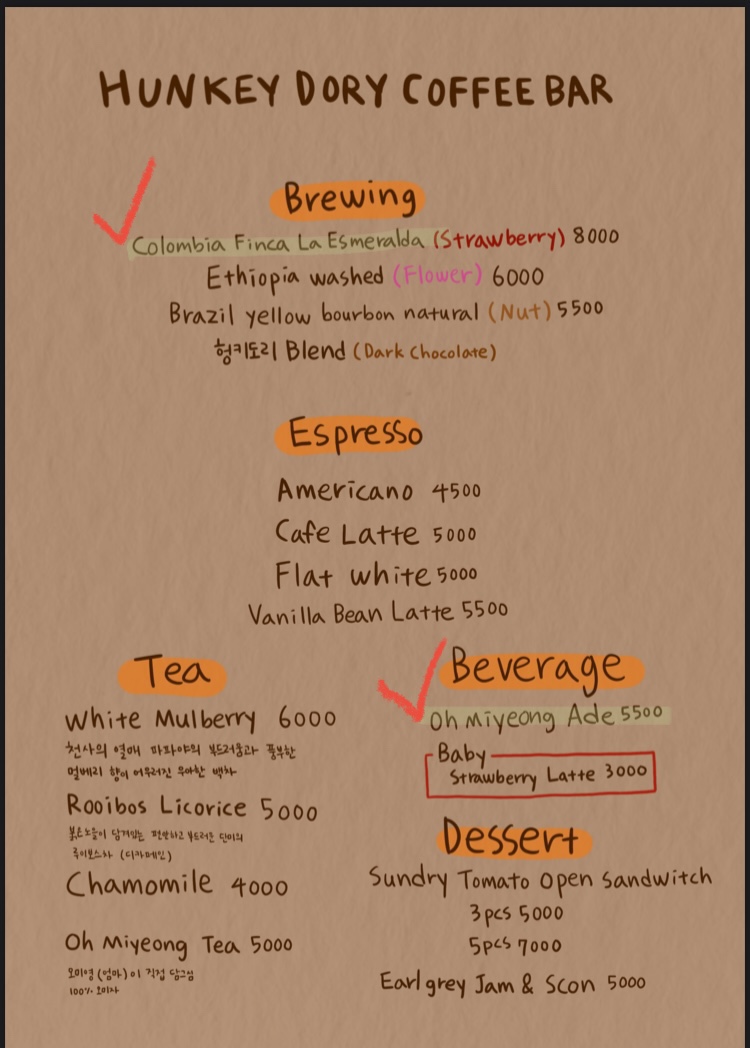 HUNKEY DORY COFFEE BAR
Brewing
Colombia Finca La Esmeralda (Strawberry) 8000
Ethiopia washed (Flower) 6000
Brazil yellow bourbon natural (Nut) 5500
헝키도리 Blend (Dark Chocolate)
Espresso
Americano 4500
Cafe Latte 5000
Flat white 5000
Vanilla Bean Latte 5500
Tea
White Mulberry 6000
천사의 열매 파파야의 부드러움과 풍부한
멀베리 향이 어우러진 우아한 백차
Rooibos Licorice 5000
붉은노을이 담겨있는 편안하고 부드러운 단미의
루이보스차 (디카페인)
Chamomile 4000
Oh Miyeong Tea 5000
오미영 (엄마)이 직접 담그심
100% 오미자
Beverage
Oh Miyeong Ade 5500
Baby
Strawberry Latte 3000
Dessert
Sundry Tomato Open Sandwitch
3pcs 5000
5pcs 7000
Earl grey Jam & Scon 5000